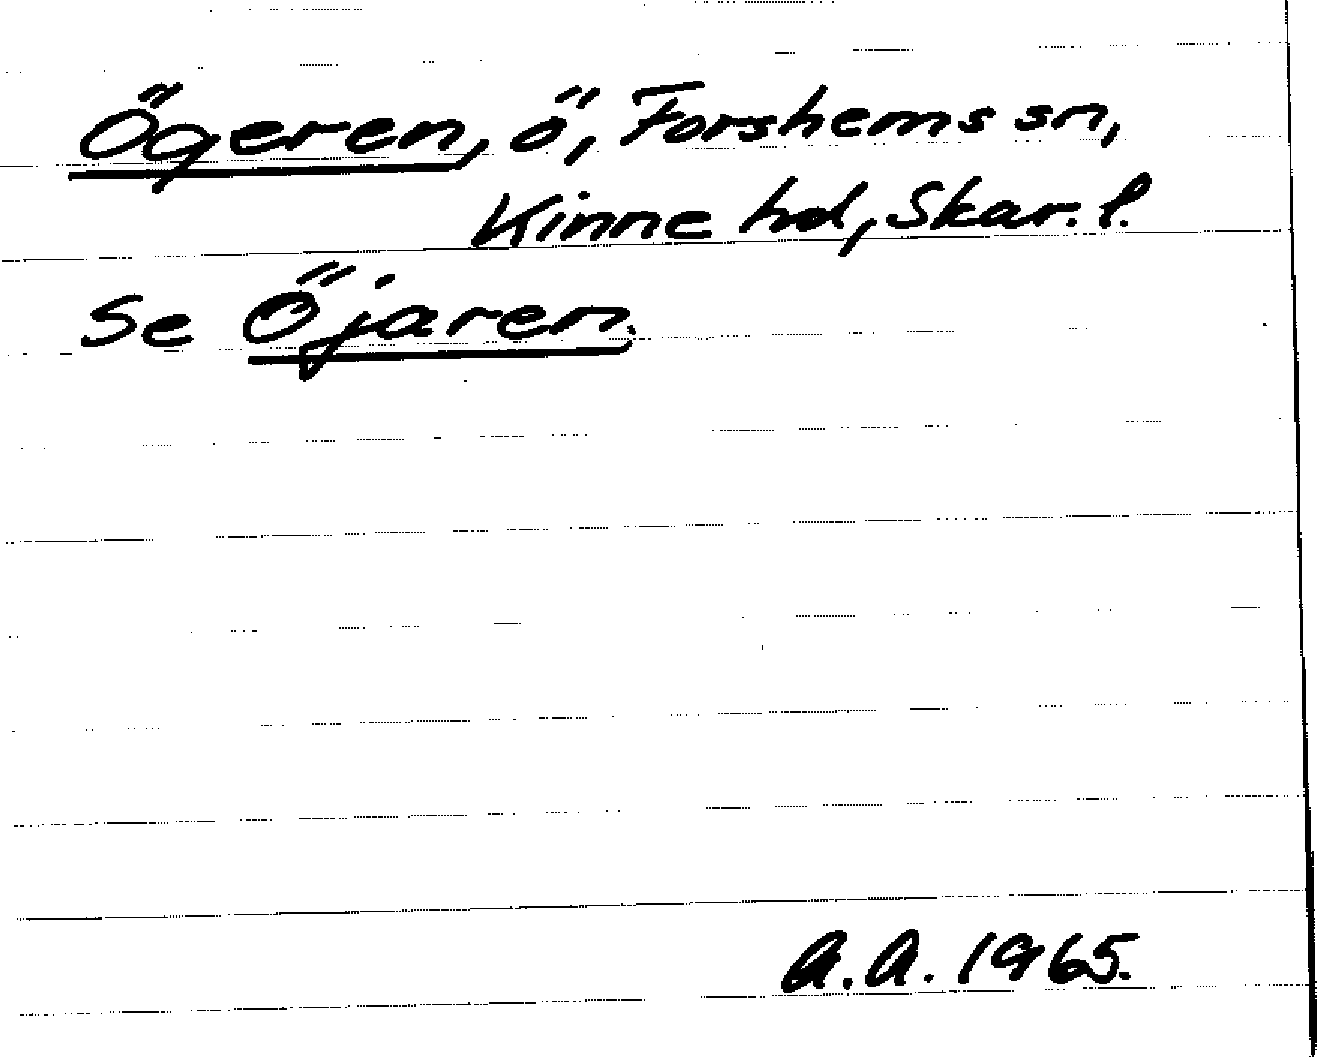 Ögeren, ö, Forshems sn,
Kinne hd, Skar. l.
Se Öjaren.
A.A. 1965.